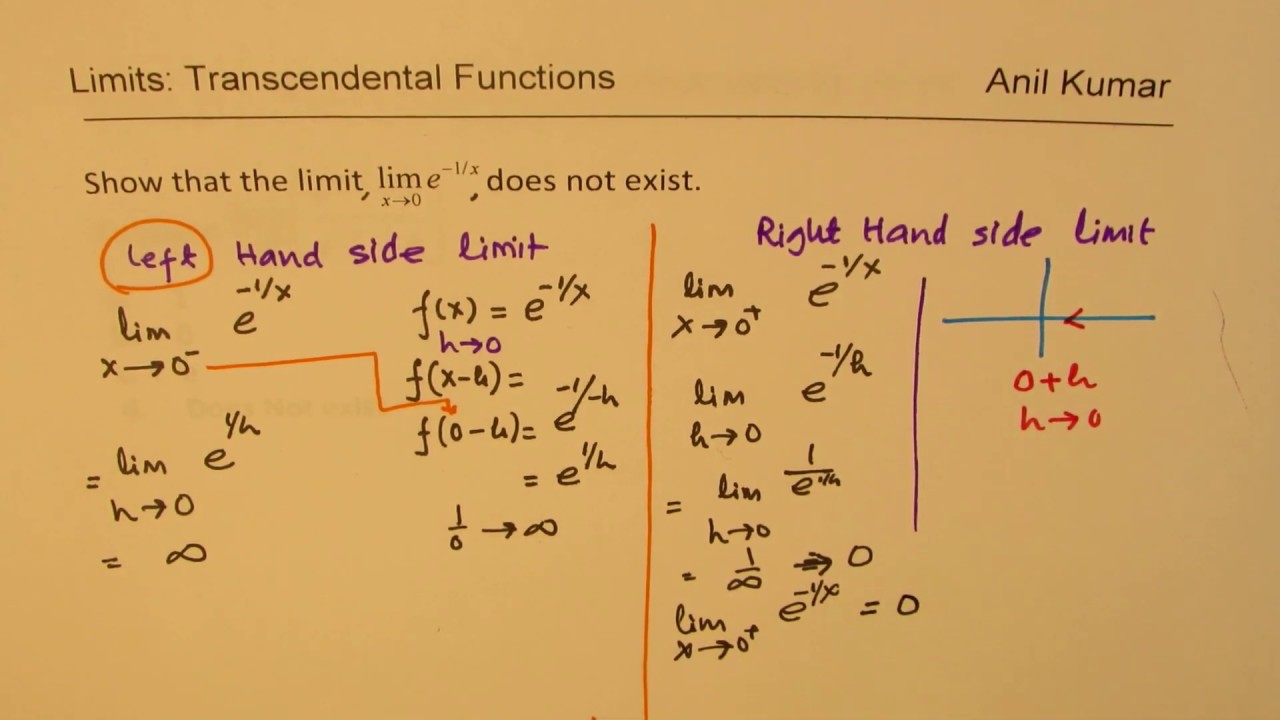 Limits: Transcendental Functions Anil Kumar
Show that the limit, lim e^{-1/x}, does not exist.
x→0
left Hand side limit
lim e^{-1/x}
x→0⁻
= lim e^{1/h}
h→0
= ∞
f(x) = e^{-1/x}
h→0
f(x-h) =
f(0-h) = e^{-1/-h}
= e^{1/h}
1/0 → ∞
Right Hand side limit
lim e^{-1/x}
x→0⁺
lim e^{-1/h}
h→0
= lim 1/e^{1/h}
h→0
= 1/∞ → 0
lim e^{-1/x} = 0
x→0⁺
0+h
h→0